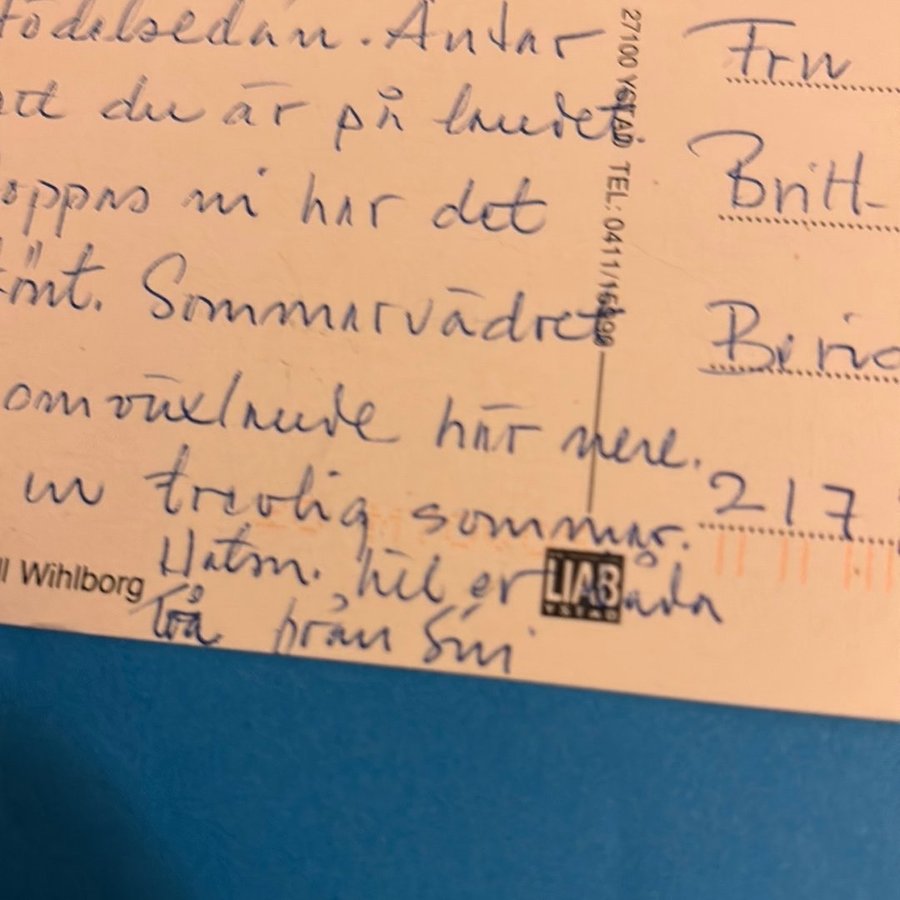 födelsedan. Antar
att du är på landet
oppas ni har det
Sommarvädret
omväxlande här nere.
en trevlig sommar.
Hälsn. hel er båda
två från Siri
ll Wihlborg
27100 YSTAD TEL: 0411/
LIAB
YSTAD
Fru
Britt-
Beri
217